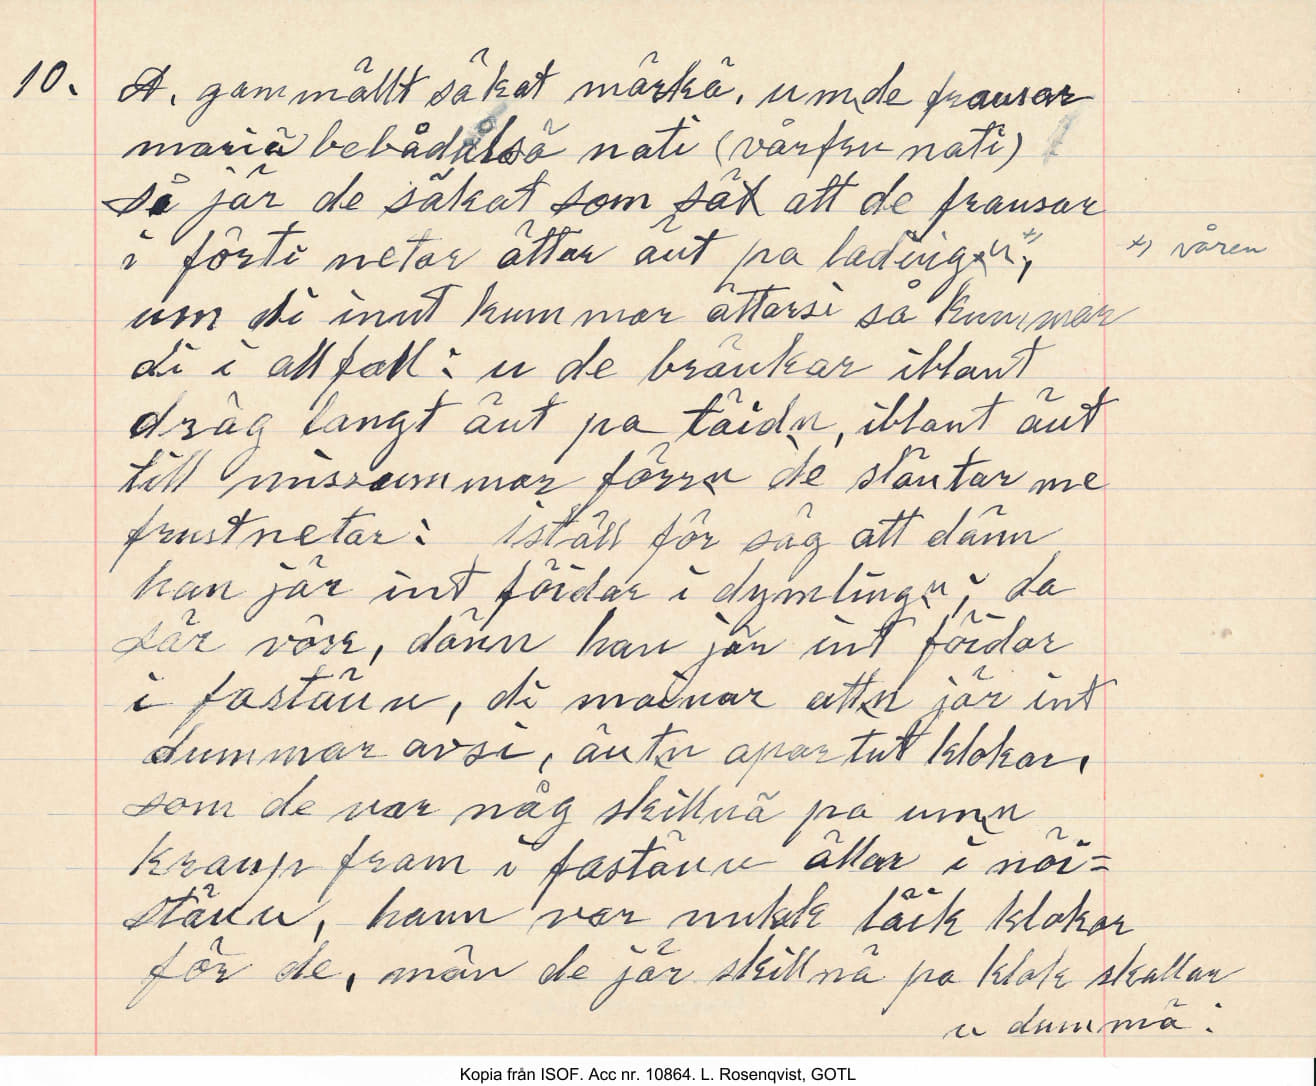 10. A, gammällt säkat märkä, um de frausar
mariä bebådålsä nati (vårfru nati)
så jär de säkat som säk att de frausar
i förti netar ättar äut pa ladingn, x) våren
um di inut kummar ättarsi så kummar
di i allfall: u de bräukar iblant
dräg langt äut pa täidn, iblant äut
till missummar förrn de släutar me
frustnetar: iställ för säg att dänn
han jär int föidar i dymlingn; da
sär vörr, dänn han jär int föidar
i fastäun, di mainar attn jär int
dummar avsi, äutn apartut klokar,
som de var någ skillnä pa umn
kraup fram i fastäun ällar i nöi=
stäun, hann var nukk läik klokar
för de, män de jär skillnä pa klok skallar
u dummä:
Kopia från ISOF. Acc nr. 10864. L. Rosenqvist, GOTL